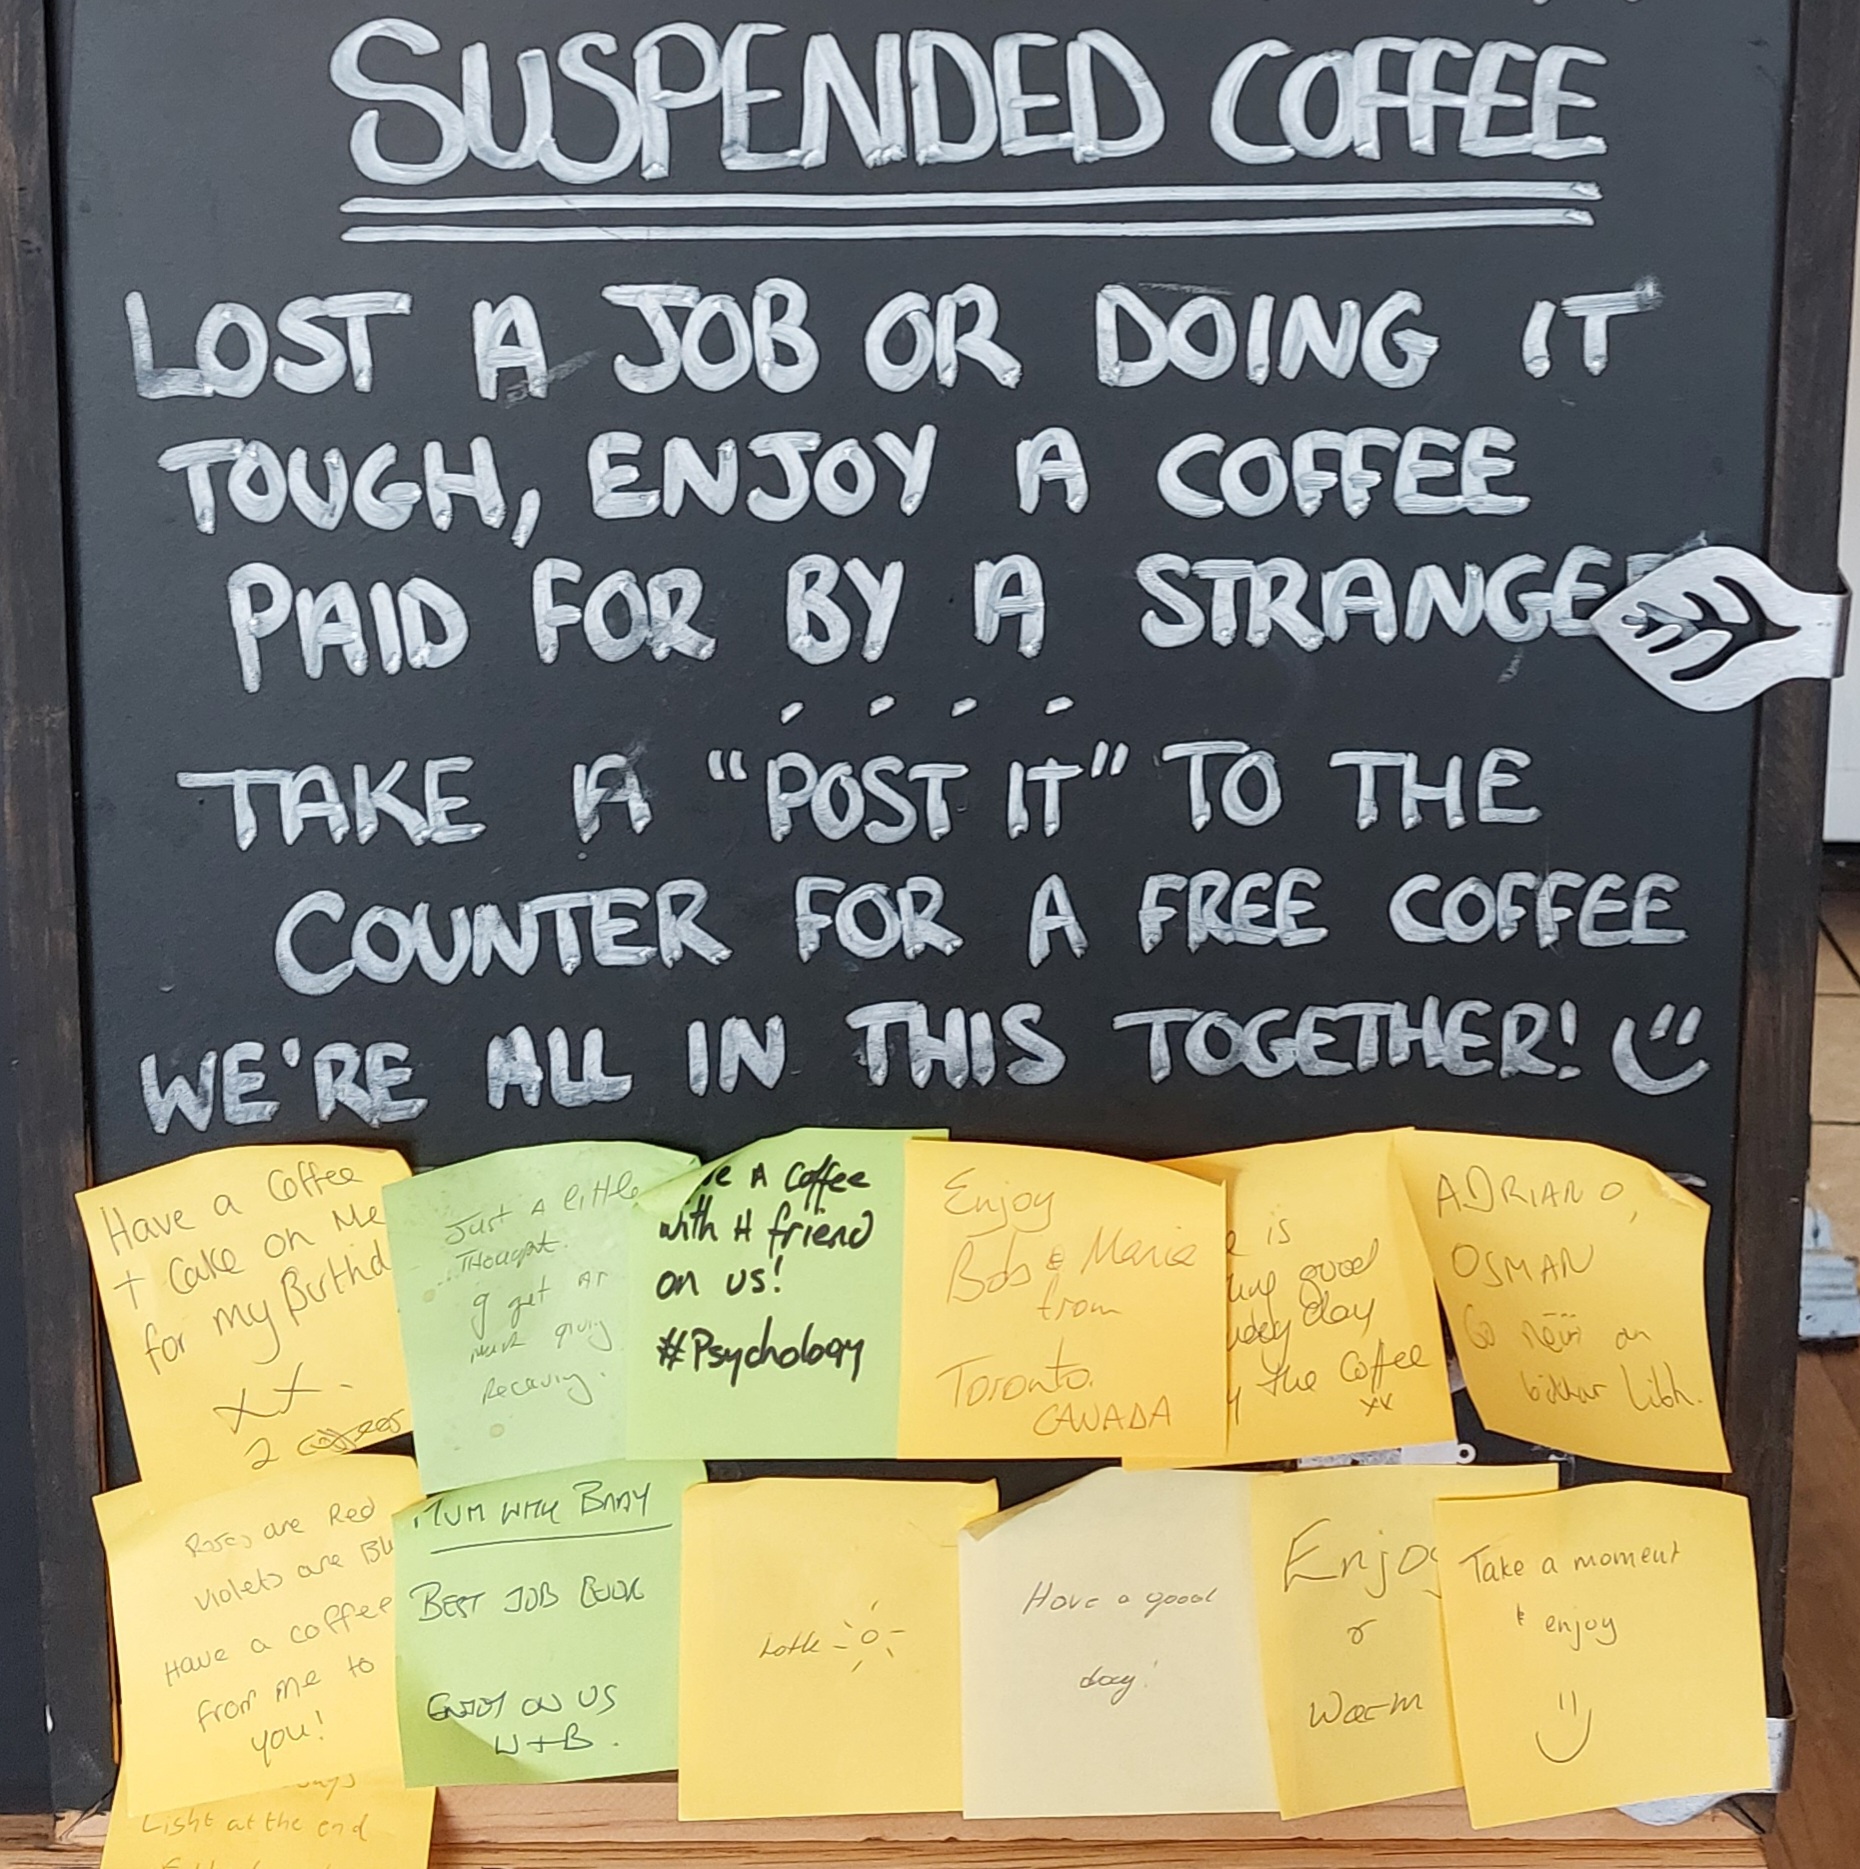 SUSPENDED COFFEE
LOST A JOB OR DOING IT
TOUGH, ENJOY A COFFEE
PAID FOR BY A STRANGE
TAKE A "POST IT" TO THE
COUNTER FOR A FREE COFFEE
WE'RE ALL IN THIS TOGETHER!
Have a Coffee
+ Cake on Me
for my Birthd
xx.
2 coffees
Just A little
Thought.
I get as
much giving
Receiving.
A Coffee
with A friend
on us!
#Psychology
Enjoy
Bob & Maria
from
Toronto.
CANADA
is
good
day
the Coffee
xx
ADRIANO,
OSMAN
Roses are Red
violets are Bl
Have a coffee
from me to
you!
MUM WITH BABY
BEST JOB
ENJOY ON US
W+B.
Have a good
day!
Enjoy
Warm
Take a moment
& enjoy
Light at the end